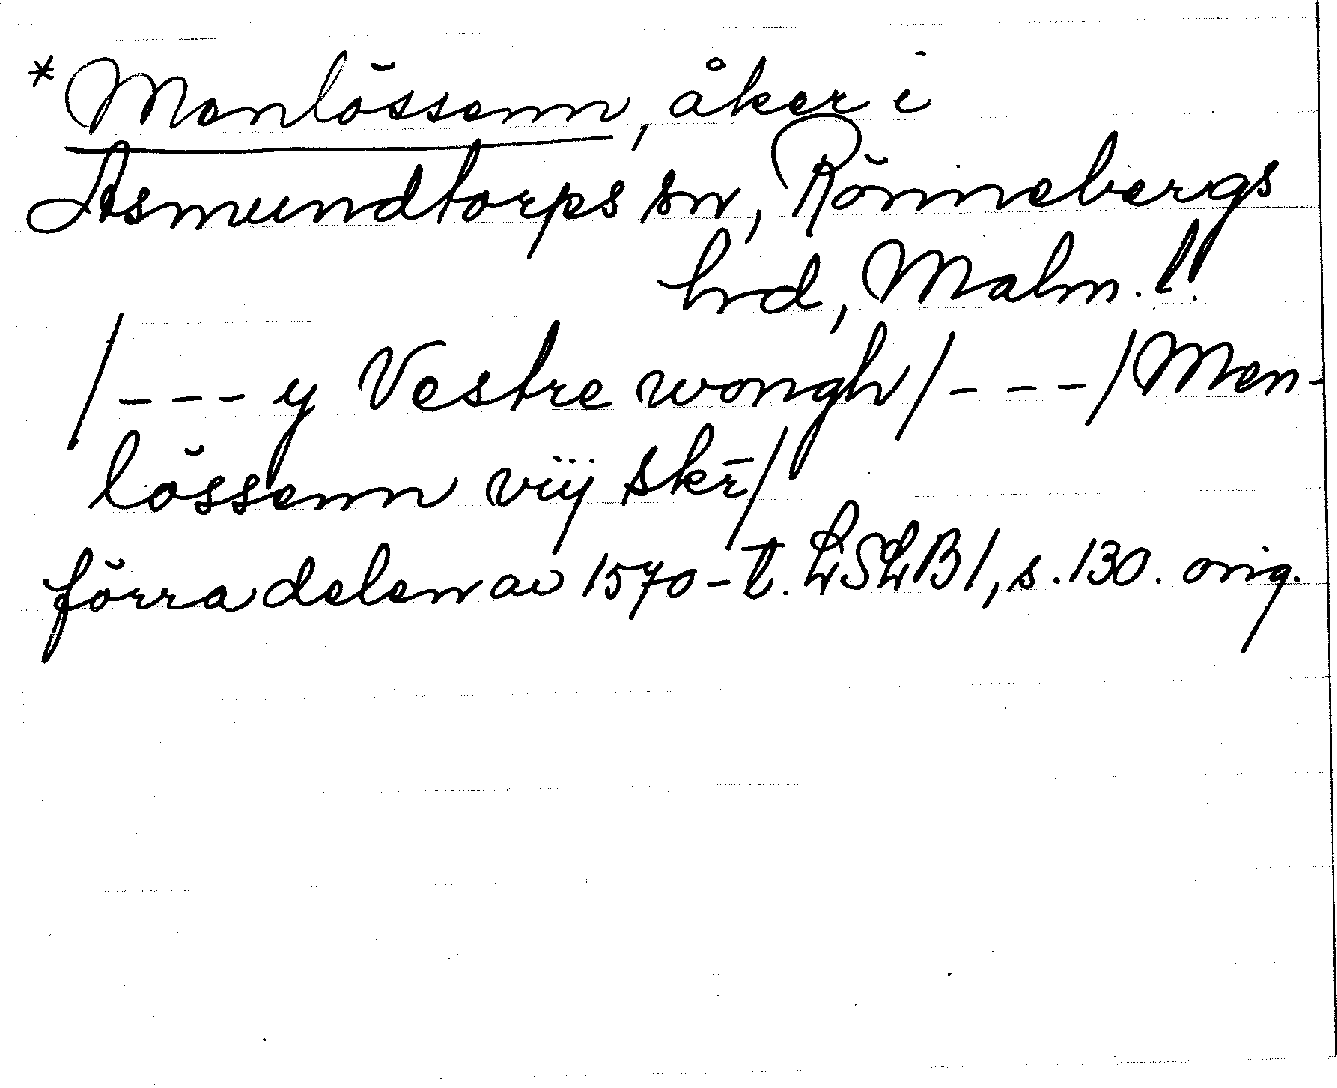 *Menlössenn, åker i
Asmundtorps sn, Rönnebergs
hrd, Malm. l.
/--- y Vestre wongh/---/Men-
lössenn viij skr̄/
förra delen av 1570-t. LSLB1, s.130. orig.